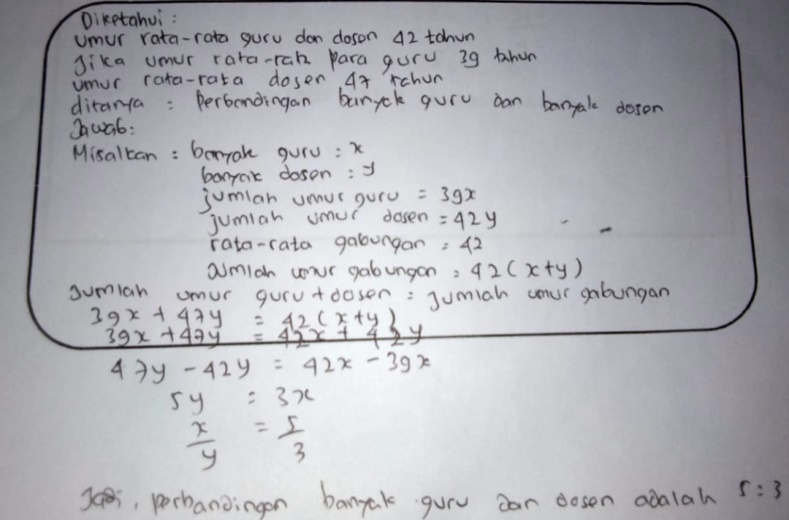 Diketahui :
Umur rata-rata guru dan dosen 42 tahun
Jika umur rata-rata para guru 39 tahun
umur rata-rata dosen 47 tahun
ditanya : Perbandingan banyak guru dan banyak dosen
Jawab:
Misalkan : banyak guru : x
banyak dosen : y
jumlah umur guru = 39x
jumlah umur dosen = 42y
rata-rata gabungan = 42
Jumlah umur gabungan = 42(x+y)
Jumlah umur guru + dosen = Jumlah umur gabungan
39x + 47y = 42(x+y)
39x + 47y = 42x + 42y
47y - 42y = 42x - 39x
5y = 3x
x/y = 5/3
Jadi, perbandingan banyak guru dan dosen adalah 5:3